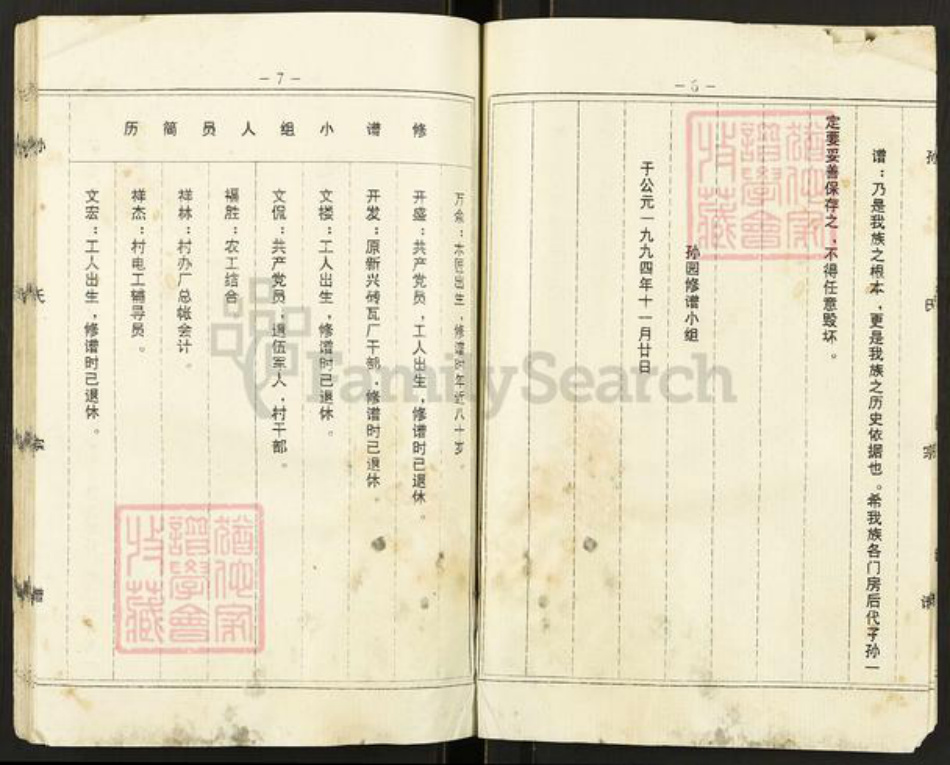 -6-
谱：乃是我族之根本，更是我族之历史依据也。希我族各门房后代子孙一
定要妥善保存之，不得任意毁坏。
孙园修谱小组
于公元一九九四年十一月廿日
孙氏宗谱
猶他家譜學會收藏
-7-
修谱小组人员简历
万金：木匠出生，修谱时年近八十岁。
开盛：共产党员，工人出生，修谱时已退休。
开发：原新兴砖瓦厂干部，修谱时已退休。
文楼：工人出生，修谱时已退休。
文侃：共产党员，退伍军人，村干部。
福胜：农工结合
祥林：村办厂总帐会计。
祥杰：村电工辅导员。
文宏：工人出生，修谱时已退休。
猶他家譜學會收藏
FamilySearch